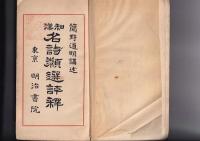 簡野道明講述
和漢
名詩類選評釋
東京 明治書院